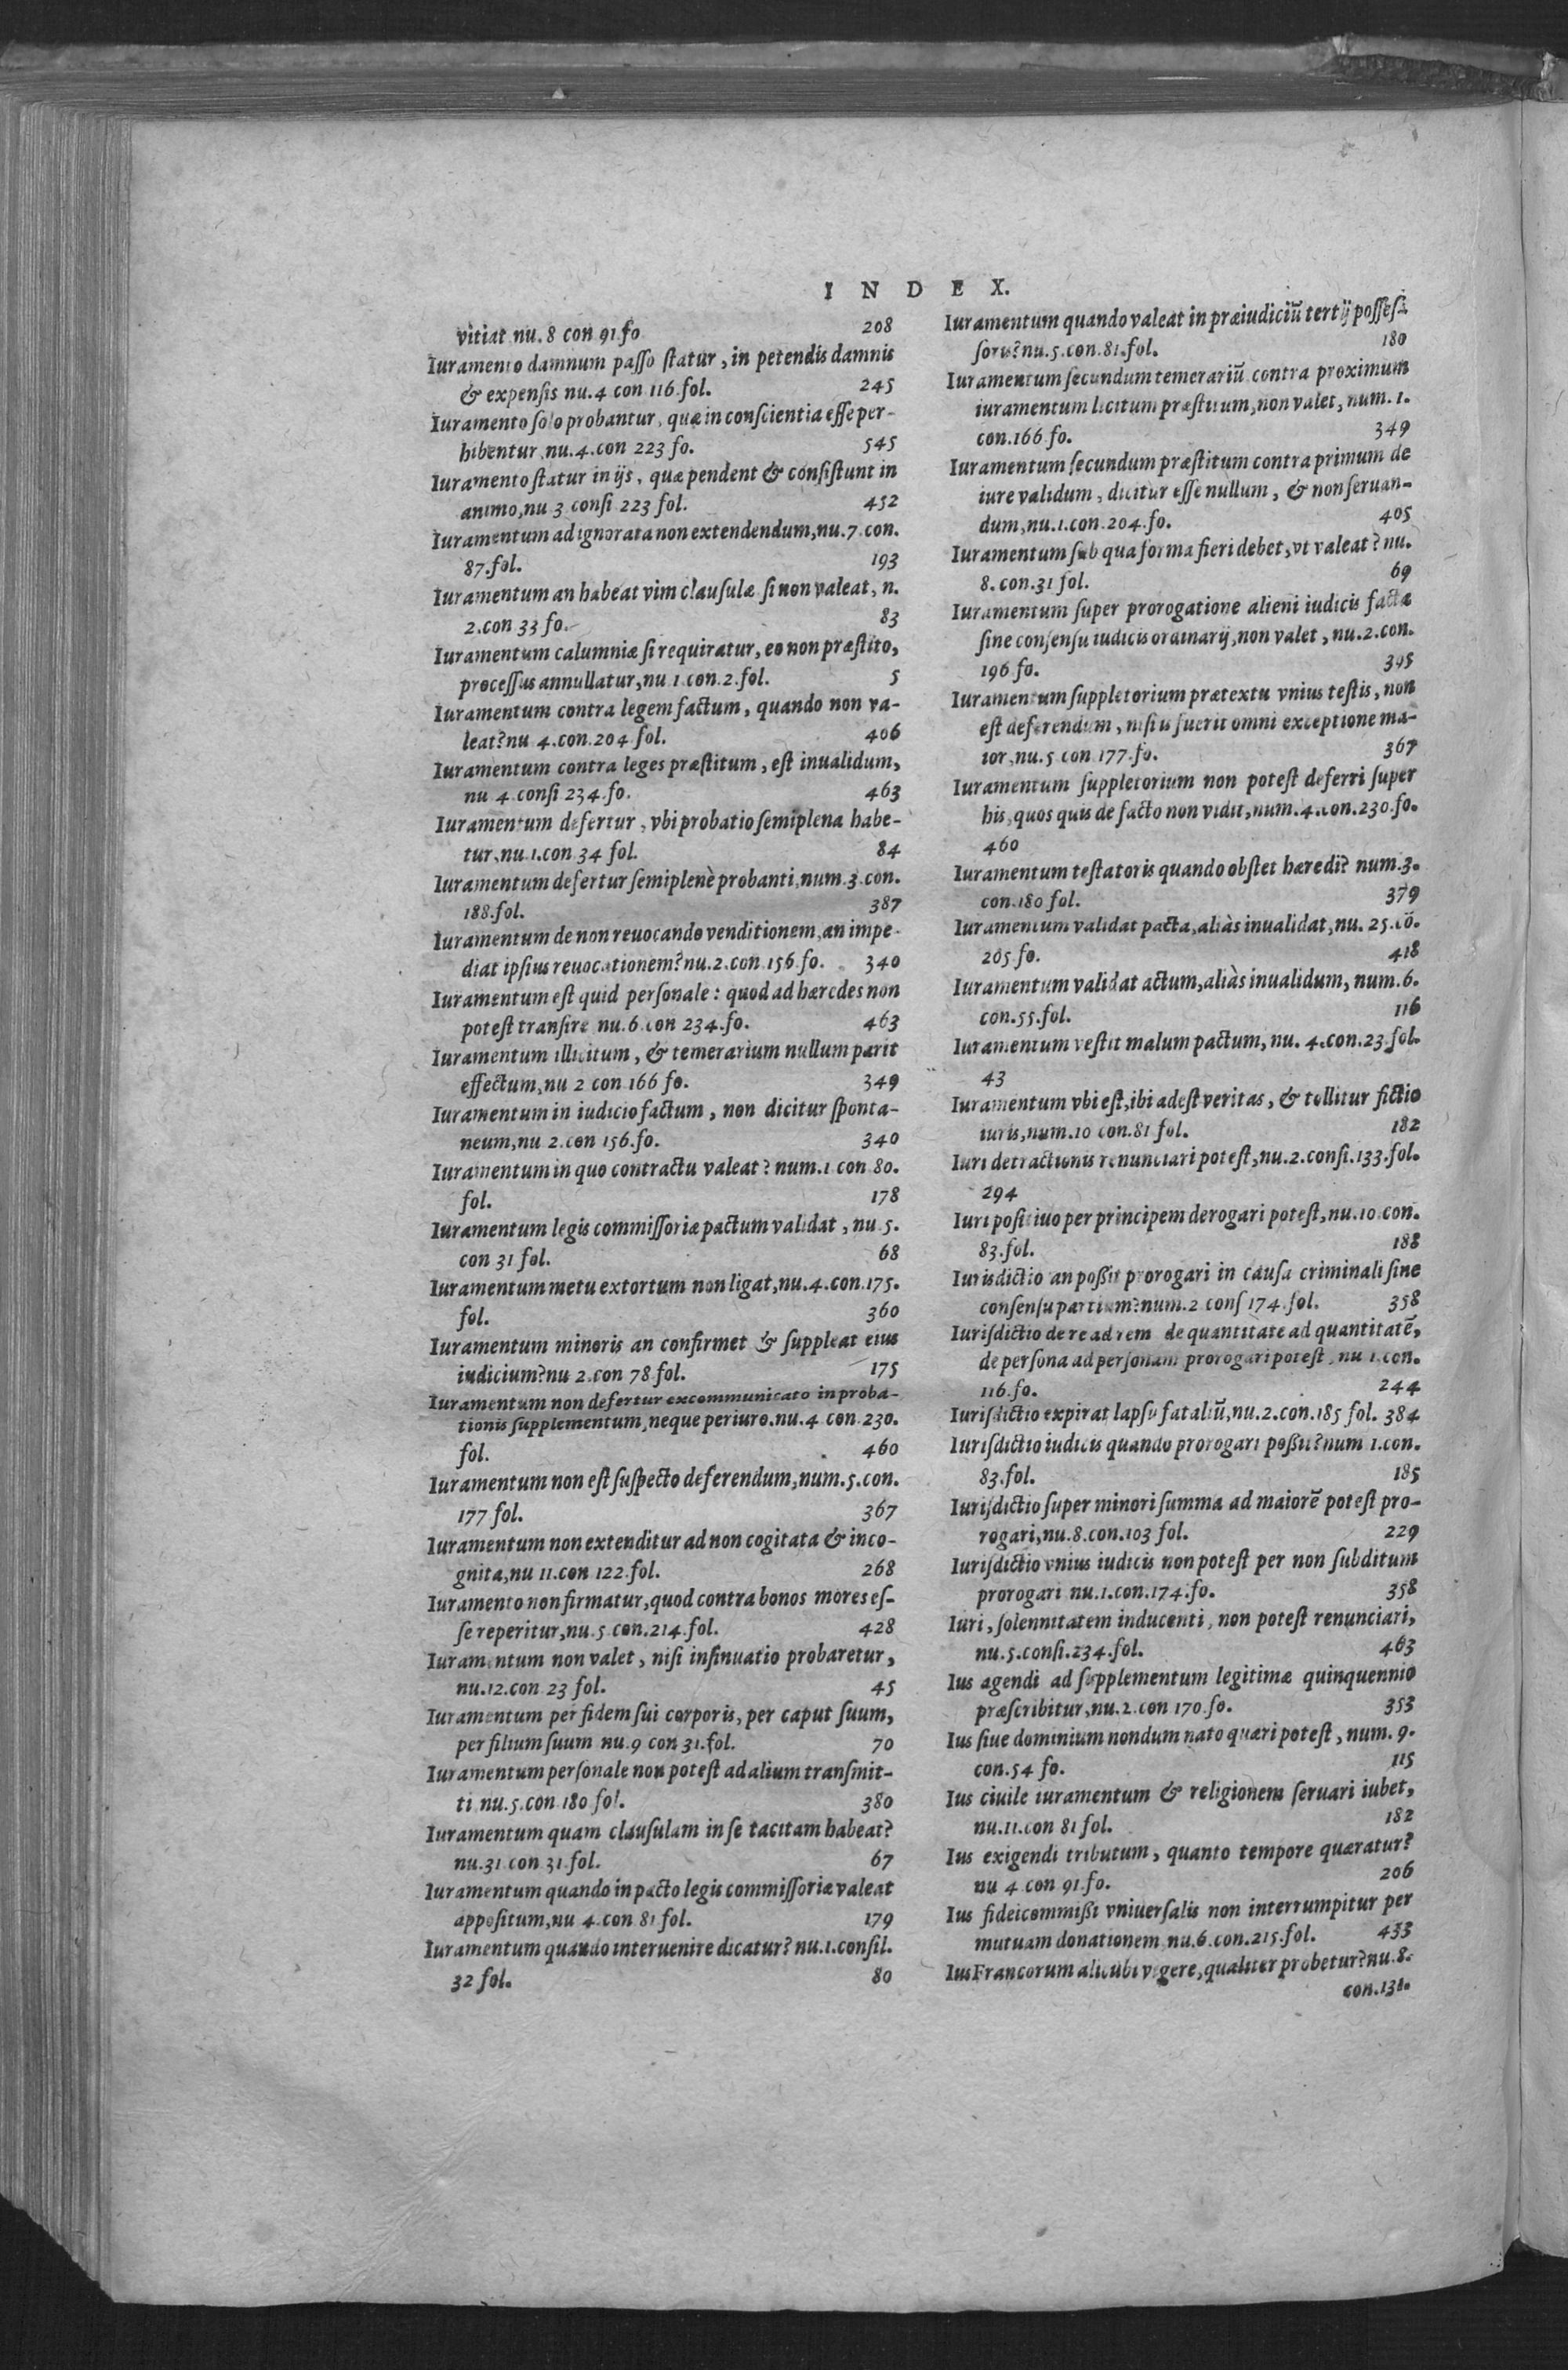 INDEX.
vitiat nu. 8 con 91. fo 208
Iuramento damnum passo ſtatur, in petendis damnis
& expenſis nu. 4 con 116. fol. 245
Iuramento ſolo probantur, quæ in conſcientia eſſe per-
hibentur, nu. 4. con 223 fo. 545
Iuramento ſtatur in ijs, quæ pendent & conſiſtunt in
animo, nu 3 conſi 223 fol. 452
Iuramentum ad ignorata non extendendum, nu. 7. con.
87. fol. 193
Iuramentum an habeat vim clauſulæ ſi non valeat, n.
2. con 33 fo. 83
Iuramentum calumniæ ſi requiratur, eo non præſtito,
proceſſus annullatur, nu 1. con. 2. fol. 5
Iuramentum contra legem factum, quando non va-
leat? nu 4. con. 204 fol. 406
Iuramentum contra leges præſtitum, eſt inualidum,
nu 4. conſi 234. fo. 463
Iuramentum defertur, vbi probatio ſemiplena habe-
tur, nu. 1. con 34 fol. 84
Iuramentum defertur ſemiplenè probanti, num. 3. con.
188. fol. 387
Iuramentum de non reuocando venditionem, an impe-
diat ipſius reuocationem? nu. 2. con 156. fo. 340
Iuramentum eſt quid perſonale: quod ad hæredes non
poteſt tranſire nu. 6. con 234. fo. 463
Iuramentum illicitum, & temerarium nullum parit
effectum, nu 2 con 166 fo. 349
Iuramentum in iudicio factum, non dicitur ſponta-
neum, nu 2. con 156. fo. 340
Iuramentum in quo contractu valeat? num. 1 con 80.
fol. 178
Iuramentum legis commiſſoriæ pactum validat, nu 5.
con 31 fol. 68
Iuramentum metu extortum non ligat, nu. 4. con. 175.
fol. 360
Iuramentum minoris an confirmet & ſuppleat eius
iudicium? nu 2. con 78. fol. 175
Iuramentum non defertur excommunicato in proba-
tionis ſupplementum, neque periuro. nu. 4 con. 230.
fol. 460
Iuramentum non eſt ſuſpecto deferendum, num. 5. con.
177 fol. 367
Iuramentum non extenditur ad non cogitata & inco-
gnita, nu 11. con 122. fol. 268
Iuramento non firmatur, quod contra bonos mores eſ-
ſe reperitur, nu. 5 con. 214. fol. 428
Iuramentum non valet, niſi inſinuatio probaretur,
nu. 12. con 23 fol. 45
Iuramentum per fidem ſui corporis, per caput ſuum,
per filium ſuum nu. 9 con 31. fol. 70
Iuramentum perſonale non poteſt ad alium tranſmit-
ti nu. 5. con 180 fol. 380
Iuramentum quam clauſulam in ſe tacitam habeat?
nu. 31 con 31. fol. 67
Iuramentum quando in pacto legis commiſſoriæ valeat
appoſitum, nu 4. con 81 fol. 179
Iuramentum quando interuenire dicatur? nu. 1. conſil.
32 fol. 80
Iuramentum quando valeat in præiudiciũ tertij poſſeſ-
ſoris? nu. 5. con. 81. fol. 180
Iuramentum ſecundum temerariũ contra proximum
iuramentum licitum præſtitum, non valet, num. 1.
con. 166 fo. 349
Iuramentum ſecundum præſtitum contra primum de
iure validum, dicitur eſſe nullum, & non ſeruan-
dum, nu. 1. con. 204. fo. 405
Iuramentum ſub qua forma fieri debet, vt valeat? nu.
8. con. 31 fol. 69
Iuramentum ſuper prorogatione alieni iudicis factæ
ſine conſenſu iudicis ordinarij, non valet, nu. 2. con.
196 fo. 395
Iuramentum ſuppletorium prætextu vnius teſtis, non
eſt deferendum, niſi is fuerit omni exceptione ma-
ior, nu. 5 con 177. fo. 367
Iuramentum ſuppletorium non poteſt deferri ſuper
his, quos quis de facto non vidit, num. 4. con. 230. fo.
460
Iuramentum teſtatoris quando obſtet hæredi? num. 3.
con. 180 fol. 379
Iuramentum validat pacta, aliàs inualidat, nu. 25. cõ.
205 fo. 418
Iuramentum validat actum, aliàs inualidum, num. 6.
con. 55. fol. 116
Iuramentum veſtit malum pactum, nu. 4. con. 23. fol.
43
Iuramentum vbi eſt, ibi adeſt veritas, & tollitur fictio
iuris, num. 10 con. 81 fol. 182
Iuri detractionis renunciari poteſt, nu. 2. conſi. 133. fol.
294
Iuri poſitiuo per principem derogari poteſt, nu. 10 con.
83. fol. 188
Iurisdictio an poßit prorogari in cauſa criminali ſine
conſenſu partium? num. 2 conſ 174. fol. 358
Iuriſdictio de re ad rem de quantitate ad quantitatẽ,
de perſona ad perſonam prorogari poteſt, nu 1. con.
116. fo. 244
Iuriſdictio expirat lapſu fataliũ, nu. 2. con. 185 fol. 384
Iuriſdictio iudicis quando prorogari poßit? num 1. con.
83. fol. 185
Iuriſdictio ſuper minori ſumma ad maiorẽ poteſt pro-
rogari, nu. 8. con. 103 fol. 229
Iuriſdictio vnius iudicis non poteſt per non ſubditum
prorogari nu. 1. con. 174. fo. 358
Iuri, ſolennitatem inducenti, non poteſt renunciari,
nu. 5. conſi. 234. fol. 463
Ius agendi ad ſupplementum legitimæ quinquennio
præſcribitur, nu. 2. con 170. fo. 353
Ius ſiue dominium nondum nato quæri poteſt, num. 9.
con. 54 fo. 115
Ius ciuile iuramentum & religionem ſeruari iubet,
nu. 11. con 81 fol. 182
Ius exigendi tributum, quanto tempore quæratur?
nu 4 con 91. fo. 206
Ius fideicommißi vniuerſalis non interrumpitur per
mutuam donationem nu. 6. con. 215. fol. 433
Ius Francorum alicubi vigere, qualiter probetur? nu. 8.
con. 131.